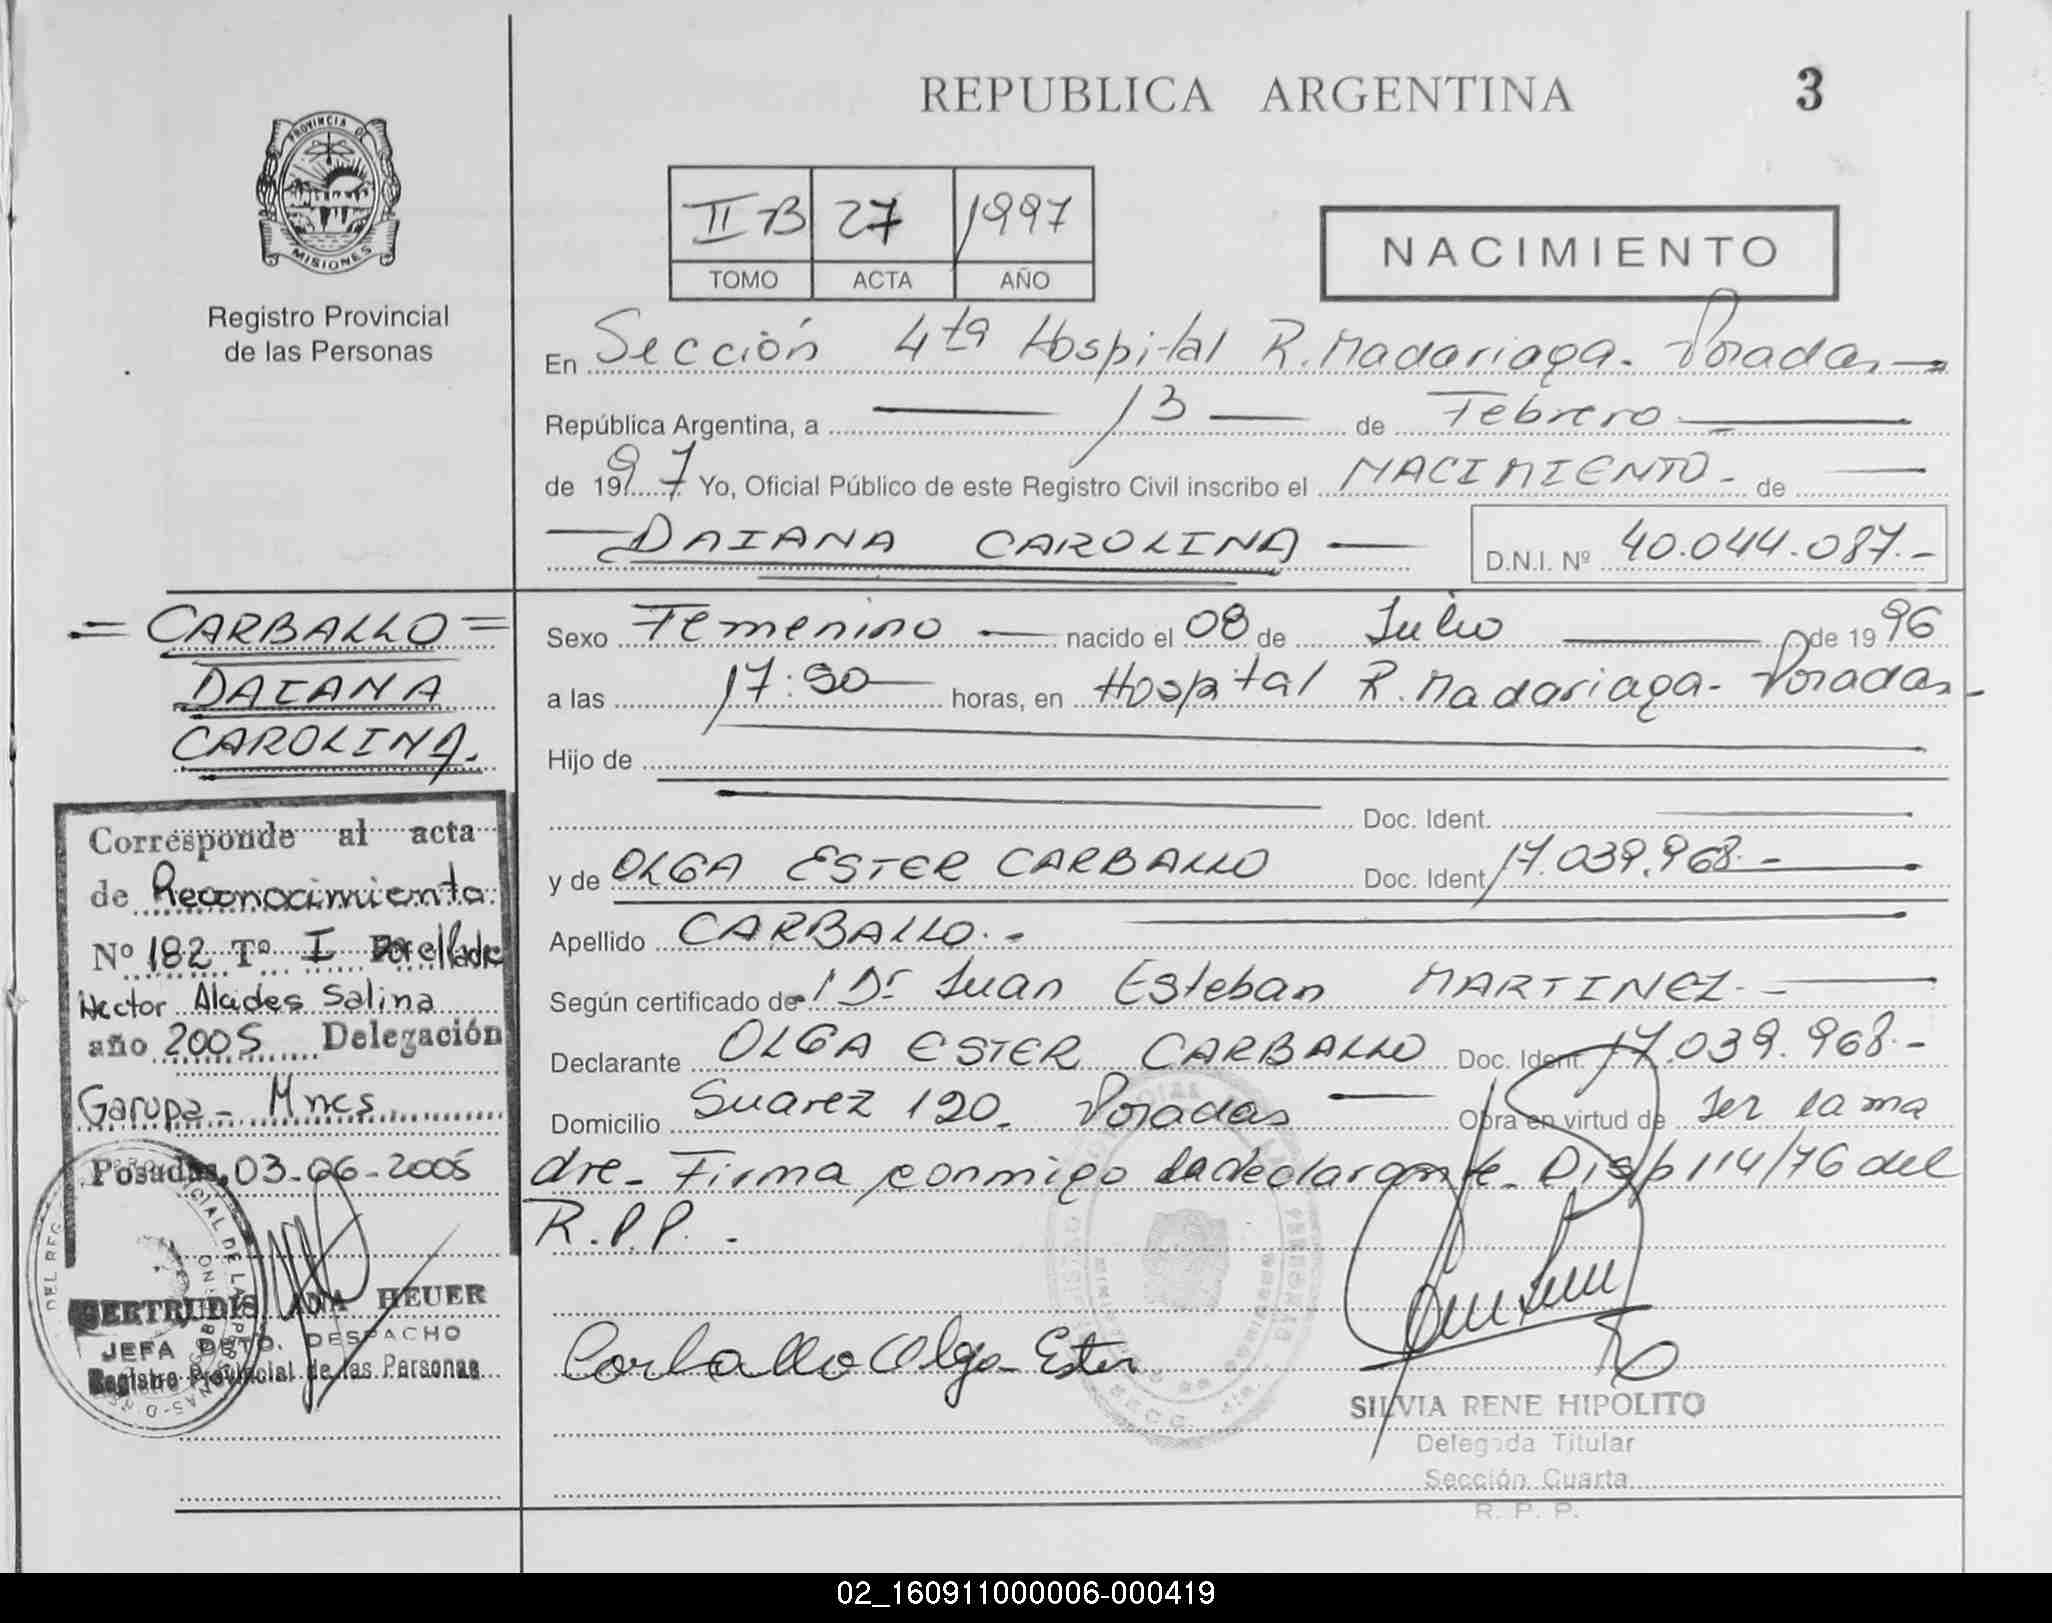 REPUBLICA ARGENTINA
3
PROVINCIA DE
MISIONES
Registro Provincial
de las Personas
II B 27 1997
TOMO ACTA AÑO
NACIMIENTO
En Sección 4ta Hospital R. Madariaga - Posadas
República Argentina, a 13 de Febrero
de 1997 Yo, Oficial Público de este Registro Civil inscribo el NACIMIENTO - de
DAIANA CAROLINA
D.N.I. Nº 40.044.087.-
= CARBALLO =
DAIANA
CAROLINA.
Sexo Femenino nacido el 08 de Julio de 1996
a las horas, en Hospital R. Madariaga - Posadas -
Hijo de
Doc. Ident.
y de OLGA ESTER CARBALLO Doc. Ident. 17.039.968.-
Apellido CARBALLO.-
Según certificado de Dr Juan Esteban MARTINEZ.-
Declarante OLGA ESTER CARBALLO Doc. Ident. 17.039.968.-
Domicilio Suarez 120. Posadas Obra en virtud de ser la ma
dre - Firma conmigo la declarante - Disp 114/76 del
R.P.P. -
Carballo Olga Ester
SILVIA RENE HIPOLITO
Delegada Titular
Sección Cuarta
R. P. P.
Corresponde al acta
de Reconocimiento
Nº 182 Tº I Por el Padre
Hector Alcides Salina
año 2005 Delegación
Garupa - Mnes
Posadas, 03-06-2005
GERTRUDIS ANA HEUER
JEFA DPTO. DESPACHO
Registro Provincial de las Personas
02_160911000006-000419